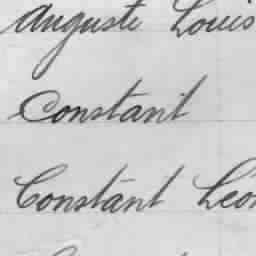 Auguste Louis
Constant
Constant Léon